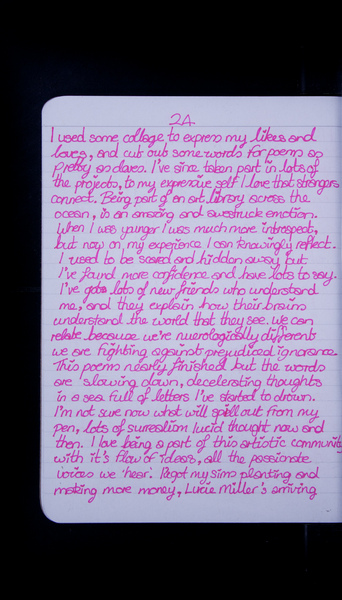 2A.
I used some collage to express my likes and
loves, and cut out some words for poems as
pretty as doves. I've since taken part in lots of
the projects, to my expressive self I love that strangers
connect. Being part of an art library across the
ocean, is an amazing and awestruck emotion.
When I was younger I was much more introspect,
but now on, my experience I can knowingly reflect.
I used to be scared and hidden away but
I've found more confidence and have lots to say.
I've gots lots of new friends who understand
me, and they explain how their brains
understand the world that they see. We can
relate because we're nuerologically different
we are fighting against prejudiced ignorance.
This poems nearly finished but the words
are slowing down, decelerating thoughts
in a sea full of letters I've started to drown.
I'm not sure now what will spill out from my
pen, lots of surrealism lucid thought now and
then. I love being a part of this artistic community
with it's flow of ideas, all the passionate
voices we 'hear'. I've got my sims planting and
making more money, Lucie Miller's arriving